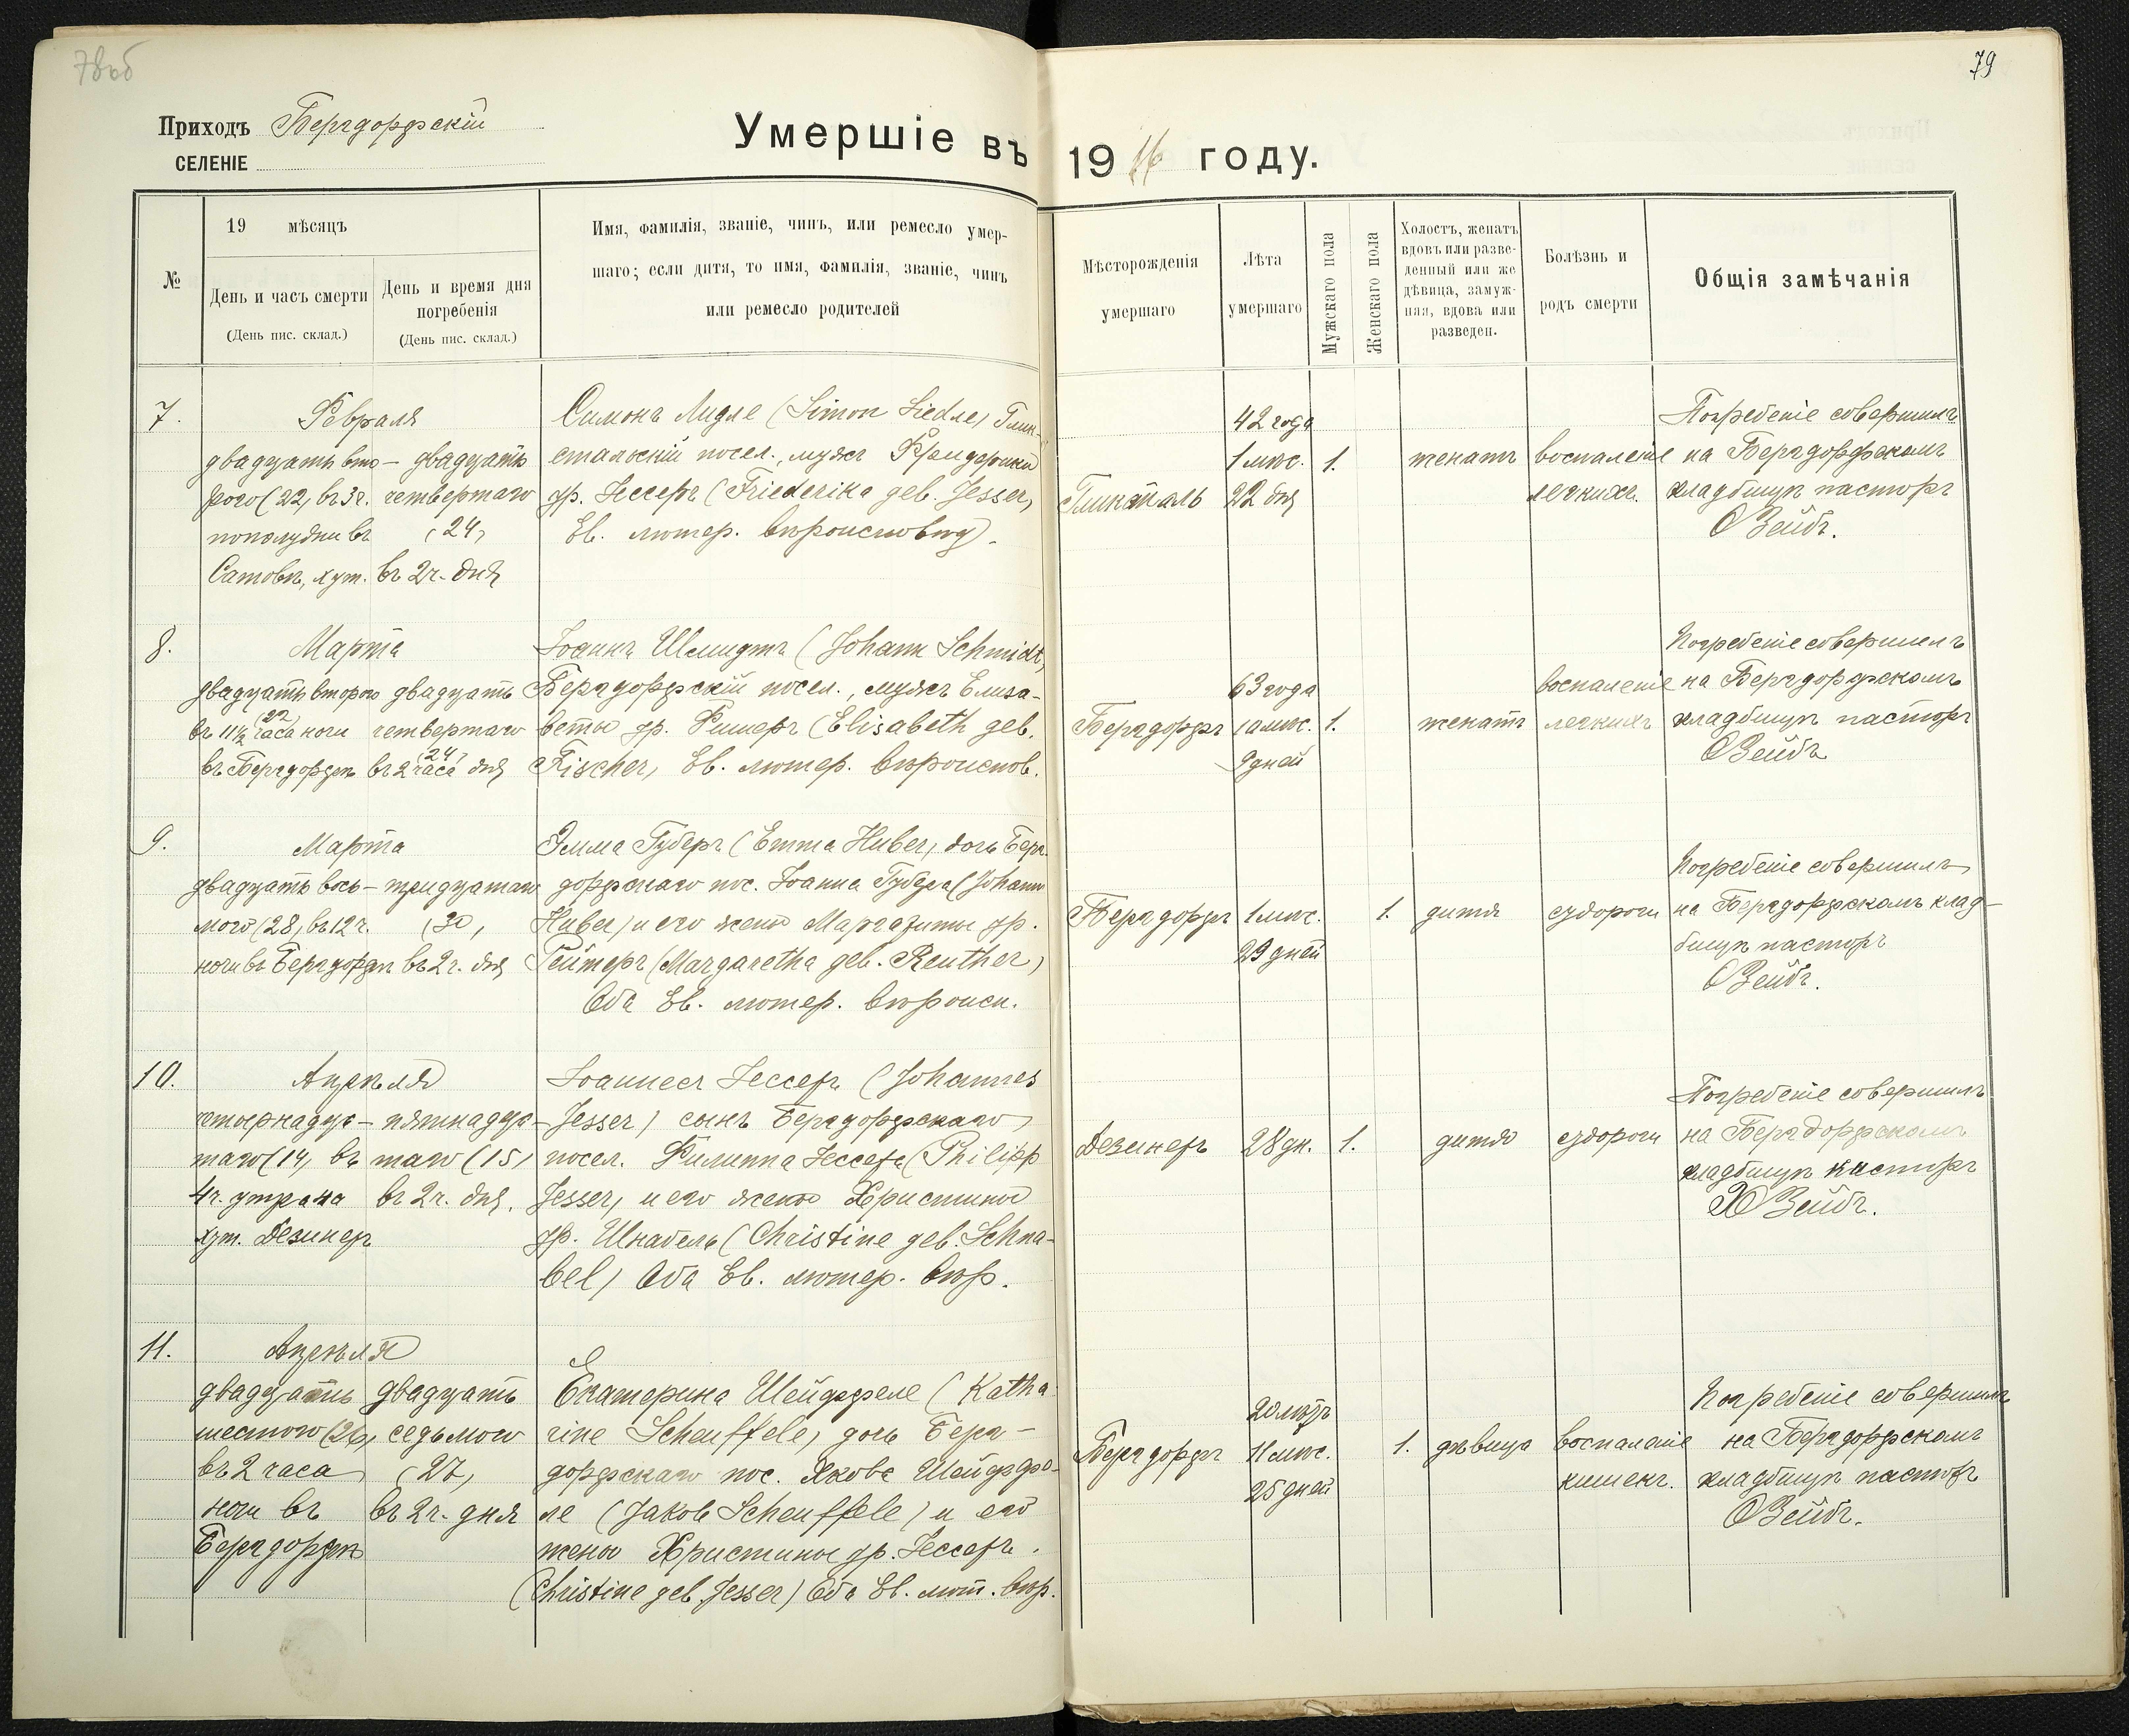 78об
79
Приходъ Бергдорфскій
СЕЛЕНІЕ
Умершіе въ 1916 году.
№
19 мѣсяцъ
День и часъ смерти
(День пис. склад.)
День и время дня
погребенія
(День пис. склад.)
Имя, фамилія, званіе, чинъ, или ремесло умер-
шаго; если дитя, то имя, фамилія, званіе, чинъ
или ремесло родителей
Мѣсторожденія
умершаго
Лѣта
умершаго
Мужскаго пола
Женскаго пола
Холостъ, женатъ
вдовъ или разве-
денный или же
дѣвица, замуж-
няя, вдова или
разведен.
Болѣзнь и
родъ смерти
Общія замѣчанія
7.
Февраля
двадцать вто-
рого (22) въ 3 ч.
пополудни въ
хут.
двадцать
четвертаго
(24)
въ 2 ч. дня
Симонъ Лидле (Simon Liedle) Глюк-
стальскій посел., мужъ Фридерики
ур. Іессеръ (Friederika geb. Jesser)
Ев. лютер. вѣроисповѣд.
Глюксталь
42 года
1 мѣс.
22 дня
1.
женатъ
воспаленіе
легкихъ.
Погребеніе совершилъ
на Бергдорфскомъ
кладбищѣ пасторъ
О Зейбъ.
8.
Марта
двадцать второго
(22)
въ 11½ часа ночи
въ Бергдорфѣ
двадцать
четвертаго
(24)
въ 2 часа дня
Іоаннъ Шмидтъ (Johann Schmidt)
Бергдорфскій посел., мужъ Елиза-
веты ур. Фишеръ (Elisabeth geb.
Fischer) Ев. лютер. вѣроиспов.
Бергдорфъ
63 года
мѣс.
9 дней
1.
женатъ
воспаленіе
легкихъ
Погребеніе совершилъ
на Бергдорфскомъ
кладбищѣ пасторъ
О Зейбъ
9.
Марта
двадцать вось-
мого (28) въ 12 ч.
ночи въ Бергдорфѣ
тридцатаго
(30)
въ 2 ч. дня
Эмма Губеръ (Emma Huber) дочь Берг-
дорфскаго пос. Іоанна Губера (Johann
Huber) и его жены Маргариты ур.
Рейтеръ (Margaretha geb. Reuther)
Оба Ев. лютер. вѣроисп.
Бергдорфъ
1 мѣс.
29 дней
1.
дитя
судороги
Погребеніе совершилъ
на Бергдорфскомъ клад-
бищѣ пасторъ
О Зейбъ.
10.
Апрѣля
четырнадца-
таго (14) въ
4 ч. утра на
хут. Дезинеръ
пятнадца-
таго (15)
въ 2 ч. дня.
Іоаннесъ Іессеръ (Johannes
Jesser) сынъ Бергдорфскаго
посел. Филиппа Іессеръ (Philipp
Jesser) и его жены Христины
ур. Шнабель (Christine geb. Schna-
bel) Оба Ев. лютер. вѣр.
Дезинеръ
28 дн.
1.
дитя
судороги
Погребеніе совершилъ
на Бергдорфскомъ
кладбищѣ пасторъ
О Зейбъ.
11.
Апрѣля
двадцать
шестого (26)
въ 2 часа
ночи въ
Бергдорфѣ
двадцать
седьмого
(27)
въ 2 ч. дня
Екатерина Шейффеле (Katha-
rine Scheuffele) дочь Берг-
дорфскаго пос. Якова Шейффе-
ле (Jakob Scheuffele) и его
жены Христины ур. Іессеръ.
(Christine geb. Jesser) Оба Ев. лют. вѣр.
Бергдорфъ
20 лѣтъ
11 мѣс.
25 дней
1.
дѣвица
воспаленіе
кишекъ.
Погребеніе совершилъ
на Бергдорфскомъ
кладбищѣ пасторъ
О Зейбъ.